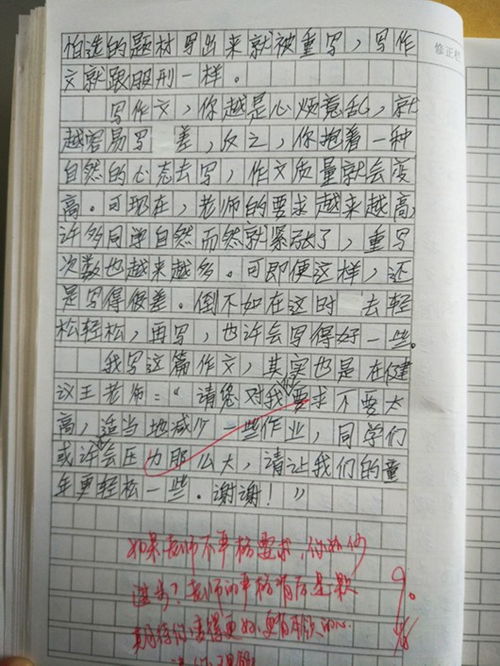 怕选的题材写出来就被重写，写作
文就跟服刑一样。
写作文，你越是心烦意乱，就
越容易写 差，反之，你抱着一种
自然的心态去写，作文质量就会变
高。可现在，老师的要求越来越高，
许多同学自然而然就紧张了，重写
次数也越来越多。可即便这样，还
是写得很差。倒不如在这时 去轻
松轻松，再写，也许会写得好一些。
我写这篇作文，其实也是在建
议王老师："请您对我要求不要太
高，适当地减少一些作业，同学们
或许会压力那么大，请让我们的童
年更轻松一些。谢谢！"
如果老师不严格要求，你如何
进步？老师的严格背后是一颗
期待你变得更好，更有的心
修正栏